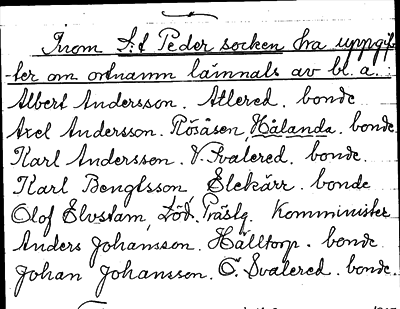 Inom S:t Peder socken ha uppgif-
ter om ortnamn lämnats av bl. a.:
Albert Andersson. Atlered. bonde
Axel Andersson. Rösåsen, Hålanda. bonde.
Karl Andersson. V. Svalered. bonde.
Karl Bengtsson Elekärr. bonde
Olof Elvstam, Löd. Prästg. Komminister
Anders Johansson. Hälltorp. bonde
Johan Johansson. Ö. Svalered. bonde.